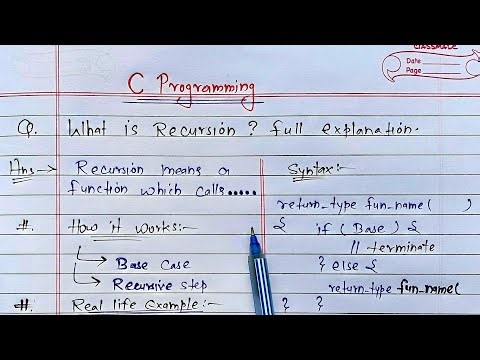 CLASSMATE
Date
Page
C Programming
Q. What is Recursion? full explanation.
Ans -> Recursion means a
function which calls.....
#. How it works:-
Base Case
Recursive step
#. Real life Example:-
Syntax:-
return_type fun_name( )
{ if (Base) {
// terminate
} else {
return_type fun_name(
} }